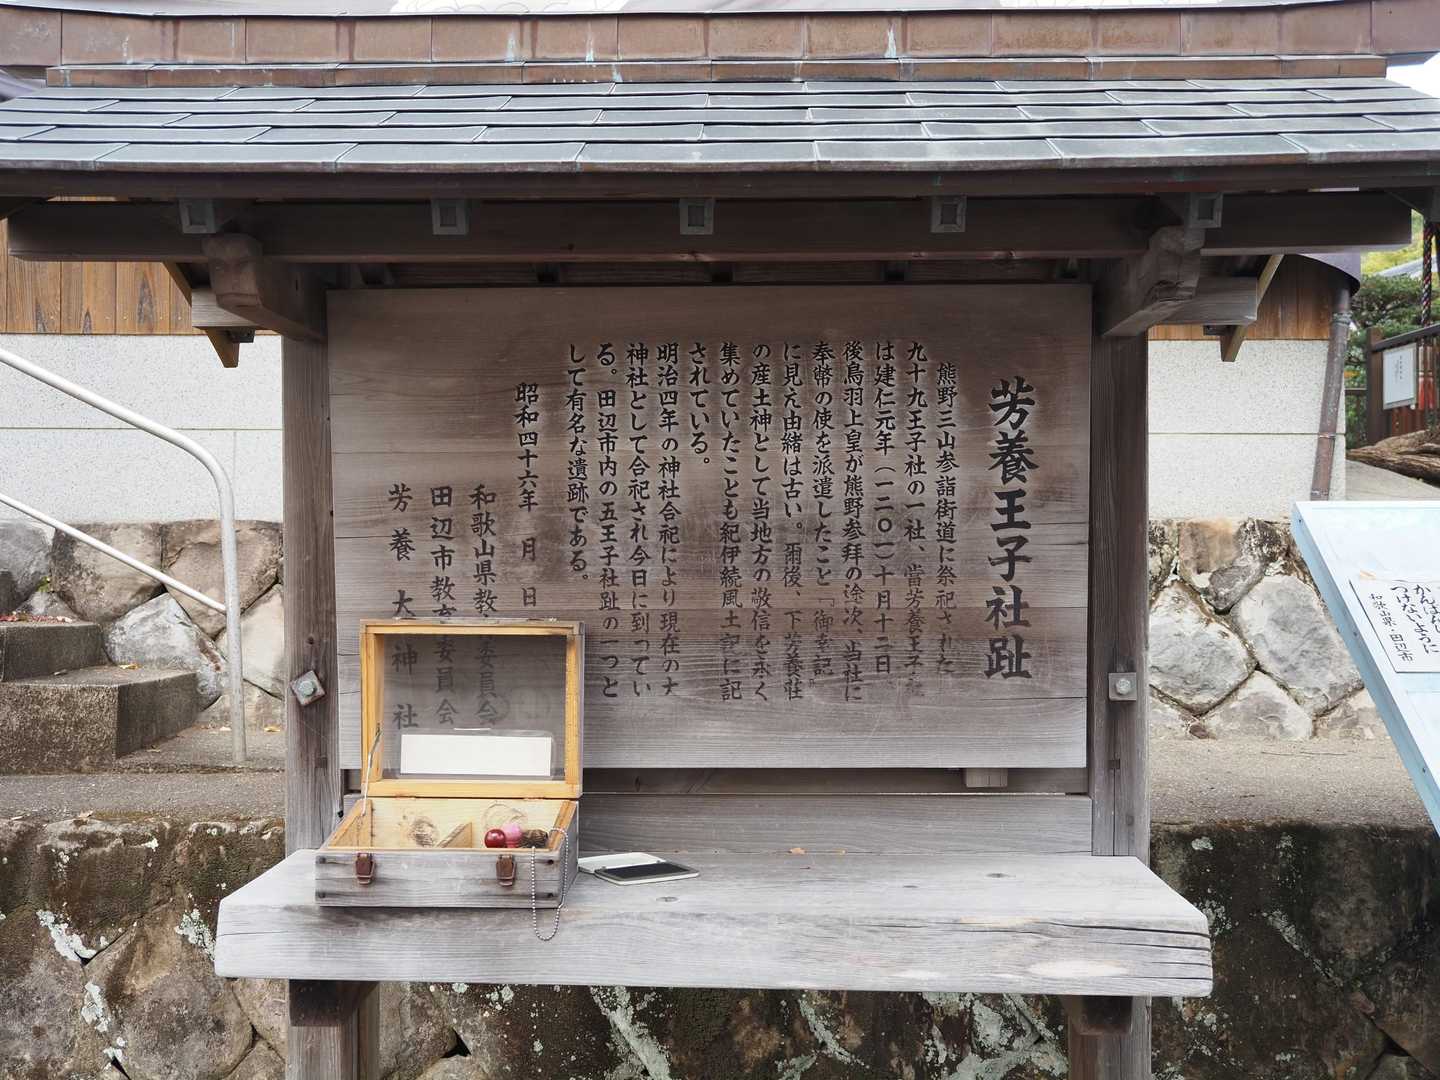 芳養王子社趾
熊野三山参詣街道に祭祀された
九十九王子社の一社、當芳養王子社
は建仁元年（一二〇一）十月十二日
後鳥羽上皇が熊野参拝の途次、当社に
奉幣の使を派遣したこと「御幸記」
に見え由緒は古い。爾後、下芳養荘
の産土神として当地方の敬信を永く
集めていたことも紀伊続風土記に記
されている。
明治四年の神社合祀により現在の大
神社として合祀され今日に到ってい
る。田辺市内の五王子社趾の一つと
して有名な遺跡である。
昭和四十六年　月　日
和歌山県教委員会
田辺市教育委員会
芳養大神社
つけないように
和歌山県・田辺市